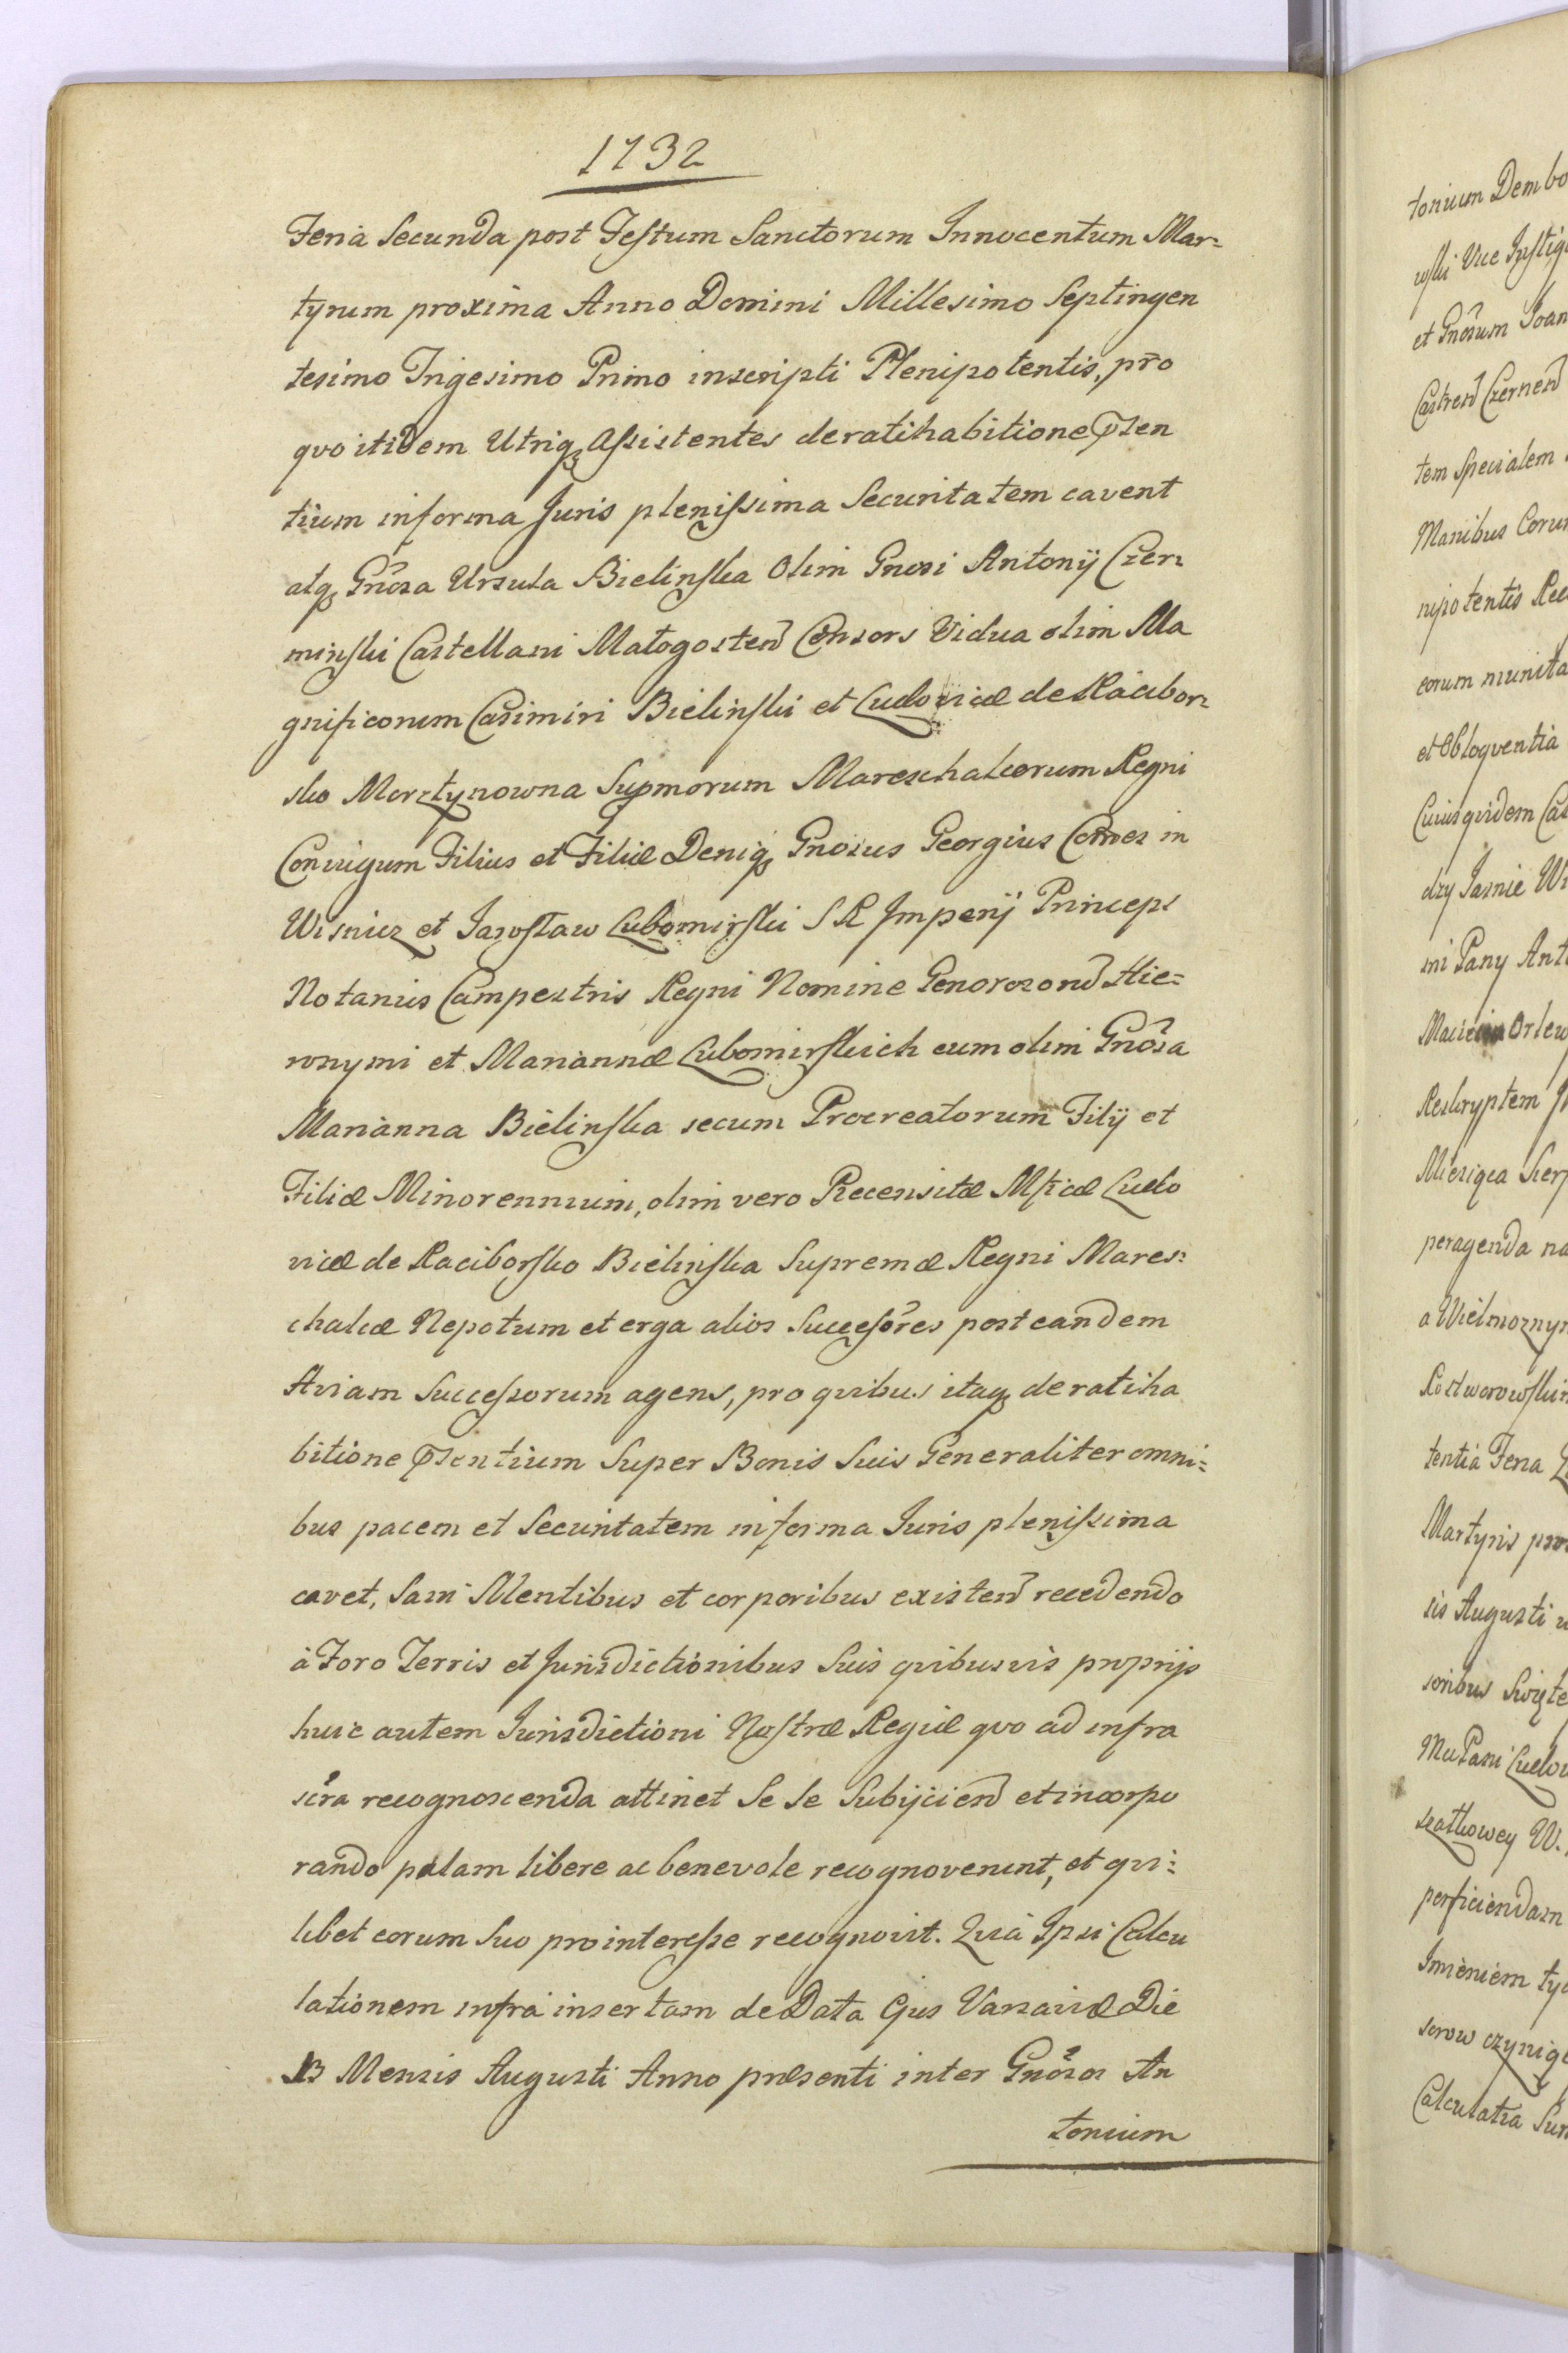 1732
Feria Secunda post Festum Sanctorum Innocentum Mar=
tyrum proxima Anno Domini Millesimo Septingen
tesimo Trigesimo Primo inscripti Plenipotentis, pro
quo itidem Utriq Assistentes de ratihabitione pSen
tium in forma Juris plenissima Securitatem cavent
atq Gnosa Ursula Bielinska Olim Gnosi Antonij Czer=
minski Castellani Małogosten Consors Vidua olim Ma
gnificorum Casimiri Bielinski et Ludovicæ de Racibor=
sko Morztynowna Supmorum Mareschalcorum Regni
Coniugum Filius et Filiæ Deniq Gnosus Georgius Comes in
Wisnicz et Jarosław Lubomirski S R Imperij Princeps
Notarius Campestris Regni Nomine Generosorum Hie=
ronymi et Mariannæ Lubomirskich cum olim Gnosa
Marianna Bielinska secum Procreatorum Filij et
Filiæ Minorennium, olim vero Recensitæ Mficæ Ludo
vicæ de Raciborsko Bielinska Supremæ Regni Mares=
chalcæ Nepotum et erga alios Successores post eandem
Aviam Successorum agens, pro quibus itaq de ratiha
bitione pSentium Super Bonis Suis Generaliter omni=
bus pacem et Securitatem in forma Juris plenissima
cavet, Sani Mentibus et corporibus existen recedendo
à Foro Terris et Jurisdictionibus Suis quibusvis proprijs
huic autem Jurisdictioni Nostræ Regiæ quo ad infra
scra recognoscenda attinet Se Se Subijcien et incorpo
rando palam libere ac benevole recognoverunt, et qui=
libet eorum Suo pro interesse recognovit. Quia Ipsi Calcu
lationem infra insertam de Data Ejus Varsaviæ Die
13 Mensis Augusti Anno præsenti inter Gnosos An
tonium
tonium Dembo
wski Vice Instig
et Gnosum Joan
Castren Czernen
tem Specialem
Manibus Coru
nipotentis Rec
eorum munita
et Obloquentia
Cuius quidem Cal
dzy Jasnie W
mi Pany Anto
Orlew
Reskryptem J
Miesiąca Sierp
peragenda na
a Wielmoznym
Rostworowskim
tentia Feria
Martyris pro
sis Augusti
soribus Święte
Mci Pani Ludov
szałkowey W.
perficiendam
Imieniem tyc
sorow czyniąc
Calculatia Sum